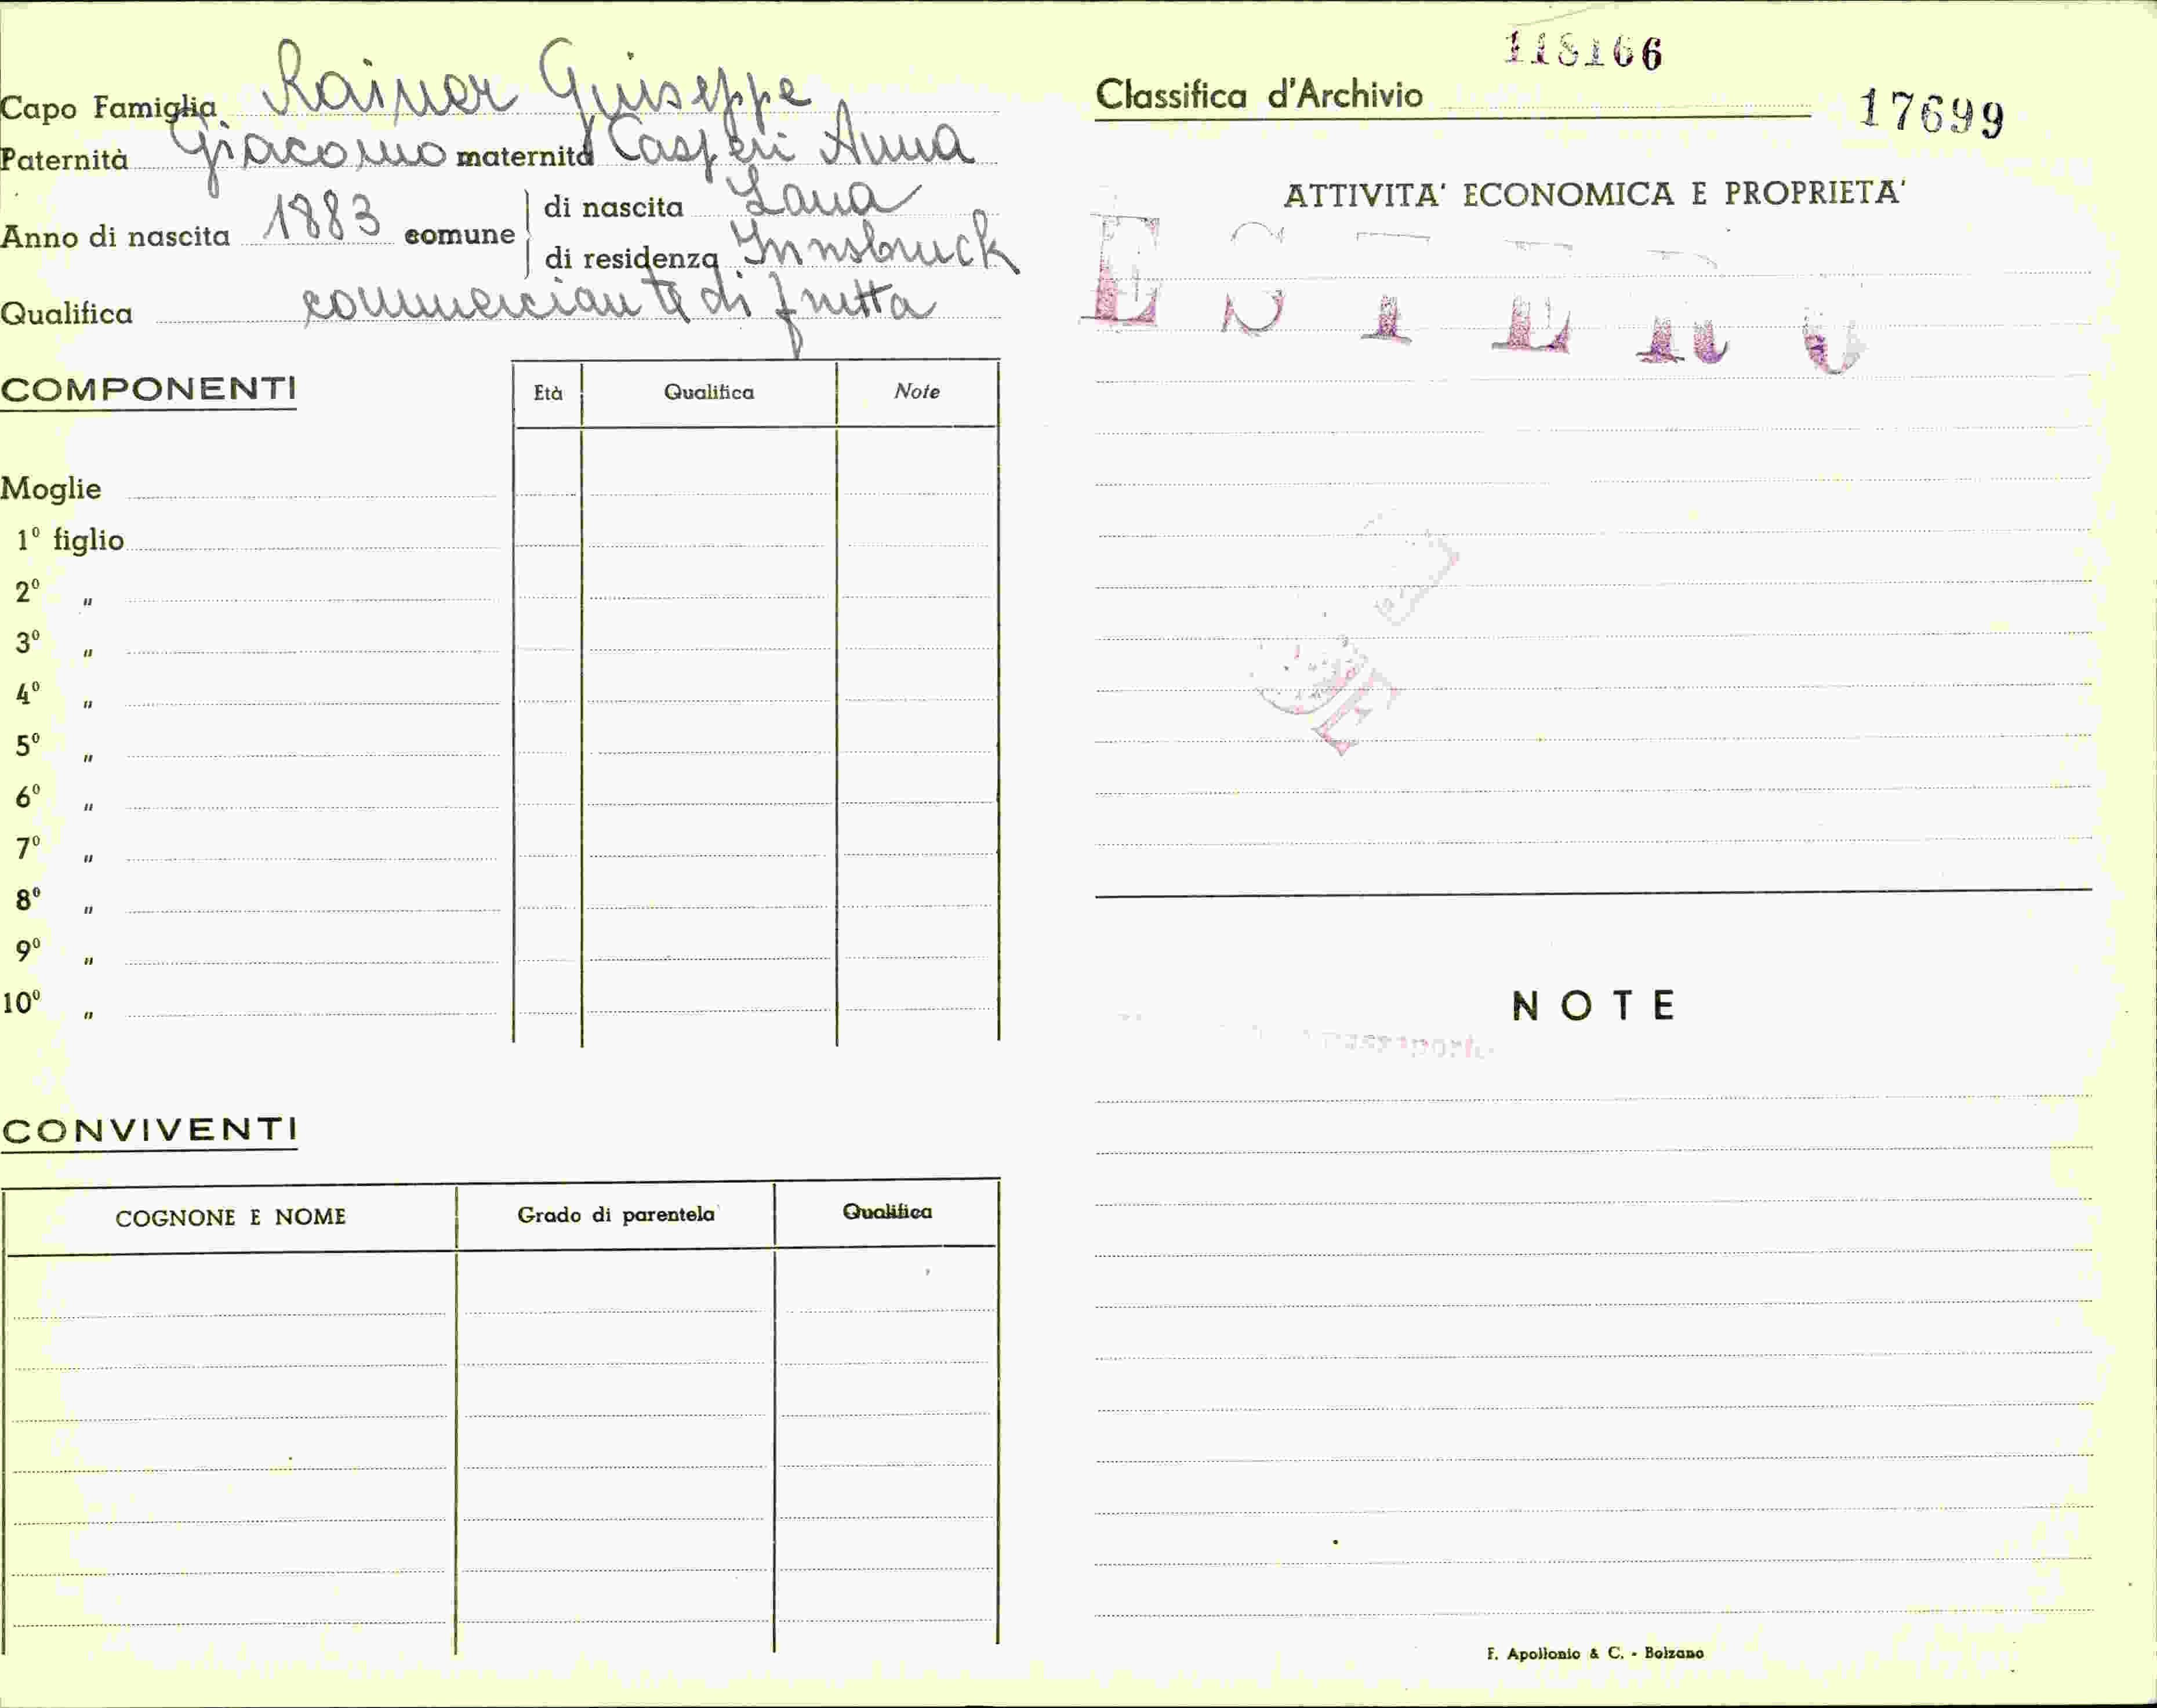 Capo Famiglia Rainer Giuseppe
Paternità Giacomo maternità Casperi Anna
Anno di nascita 1883 comune di nascita Lana
di residenza Innsbruck
Qualifica commerciante di frutta
COMPONENTI
Età Qualifica Note
Moglie
1º figlio
2º "
3º "
4º "
5º "
6º "
7º "
8º "
9º "
10º "
CONVIVENTI
COGNONE E NOME Grado di parentela Qualifica
118166
Classifica d'Archivio
17699
ATTIVITA' ECONOMICA E PROPRIETA'
ESTERO
NOTE
F. Apollonio & C. - Bolzano